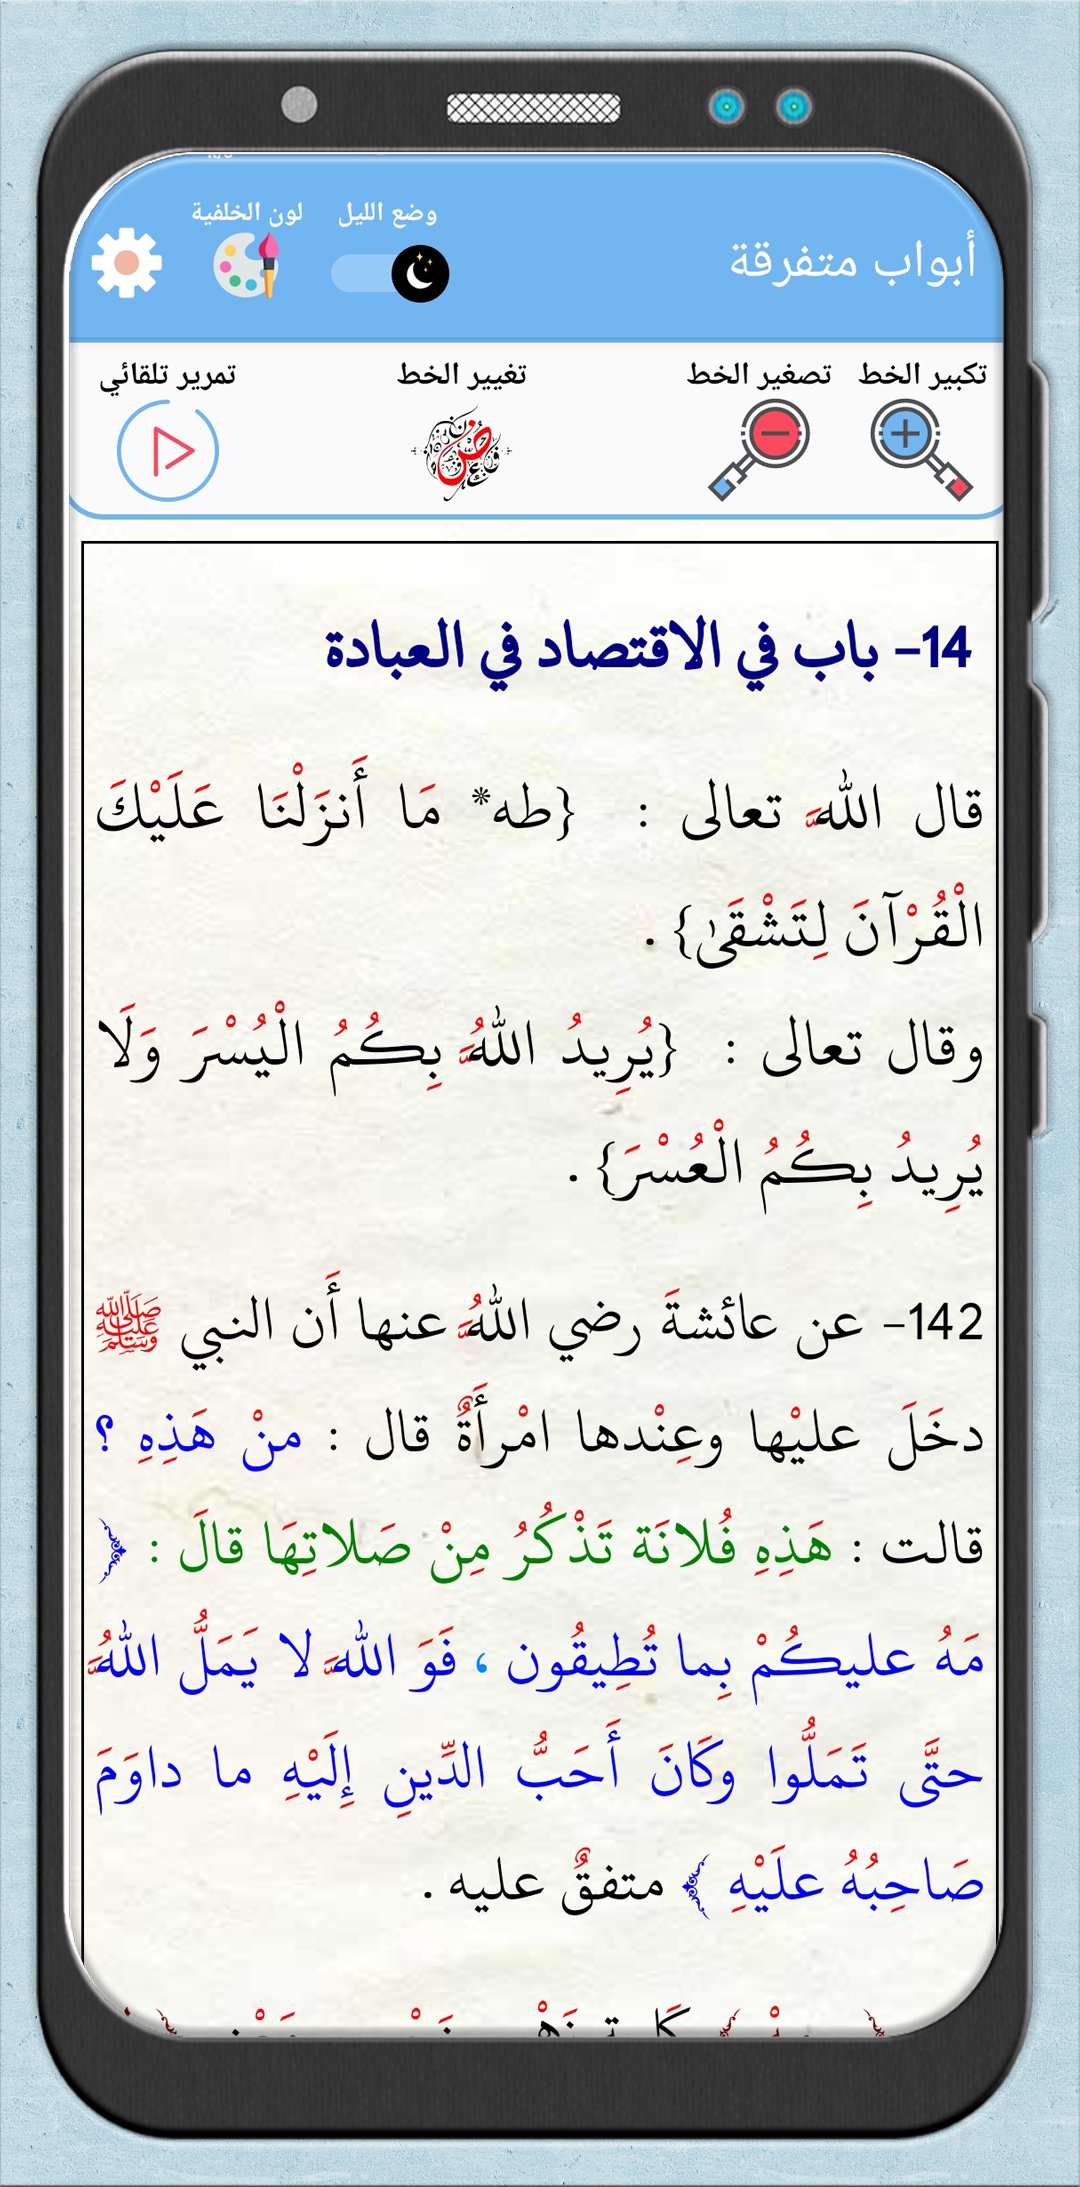 وضع الليل
لون الخلفية
أبواب متفرقة
تكبير الخط
تصغير الخط
تغيير الخط
تمرير تلقائي
14- باب في الاقتصاد في العبادة
قال اللهَّ تعالى : {طه* مَا أَنزَلْنَا عَلَيْكَ
الْقُرْآنَ لِتَشْقَىٰ} .
وقال تعالى : {يُرِيدُ اللهَُّ بِكُمُ الْيُسْرَ وَلَا
يُرِيدُ بِكُمُ الْعُسْرَ} .
142- عن عائشةَ رضي اللهَُّ عنها أَن النبي ﷺ
دخَلَ عليْها وعِنْدها امْرأَةٌ قال : منْ هَذِهِ ؟
قالت : هَذِهِ فُلانَة تَذْكُرُ مِنْ صَلاتِهَا قالَ : ﴿
مَهُ عليكُمْ بِما تُطِيقُون ، فَوَ اللهَّ لا يَمَلُّ اللهَُّ
حتَّى تَمَلُّوا وكَانَ أَحَبُّ الدِّينِ إِلَيْهِ ما داوَمَ
صَاحِبُهُ علَيْهِ ﴾ متفقٌ عليه .